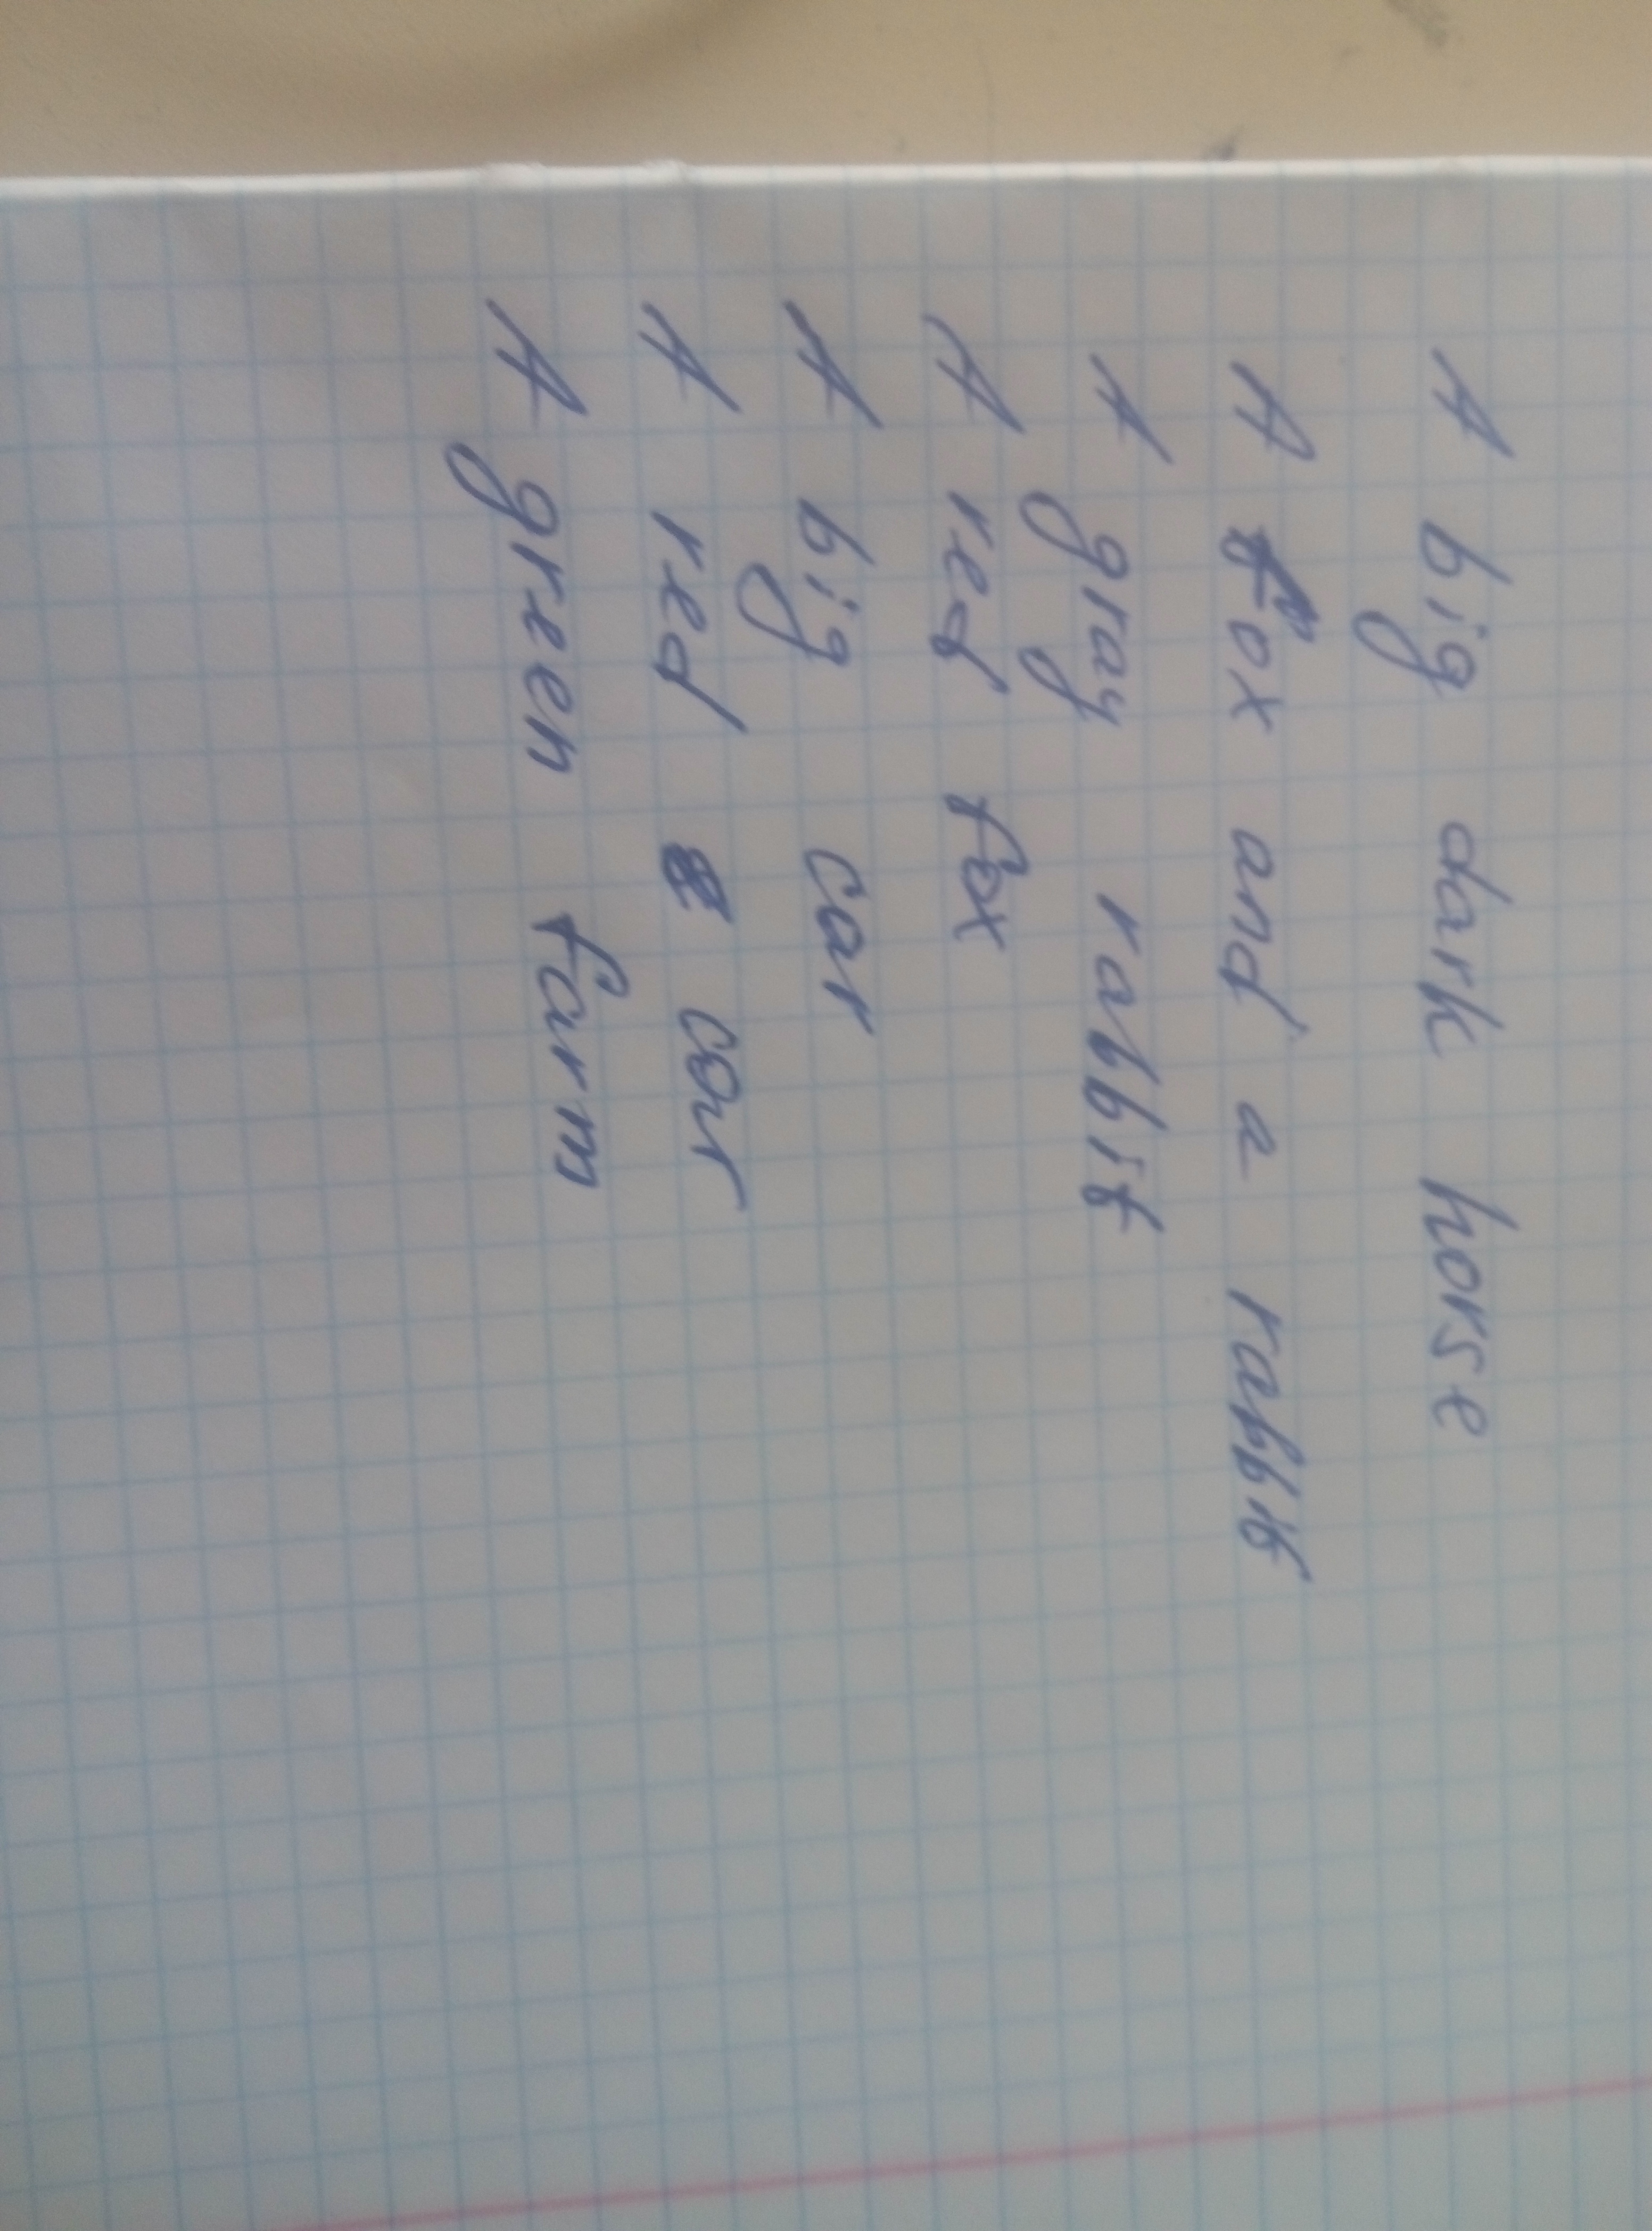 A big dark horse
A fox and a rabbit
A gray rabbit
A red fox
A big car
A red car
A green farm